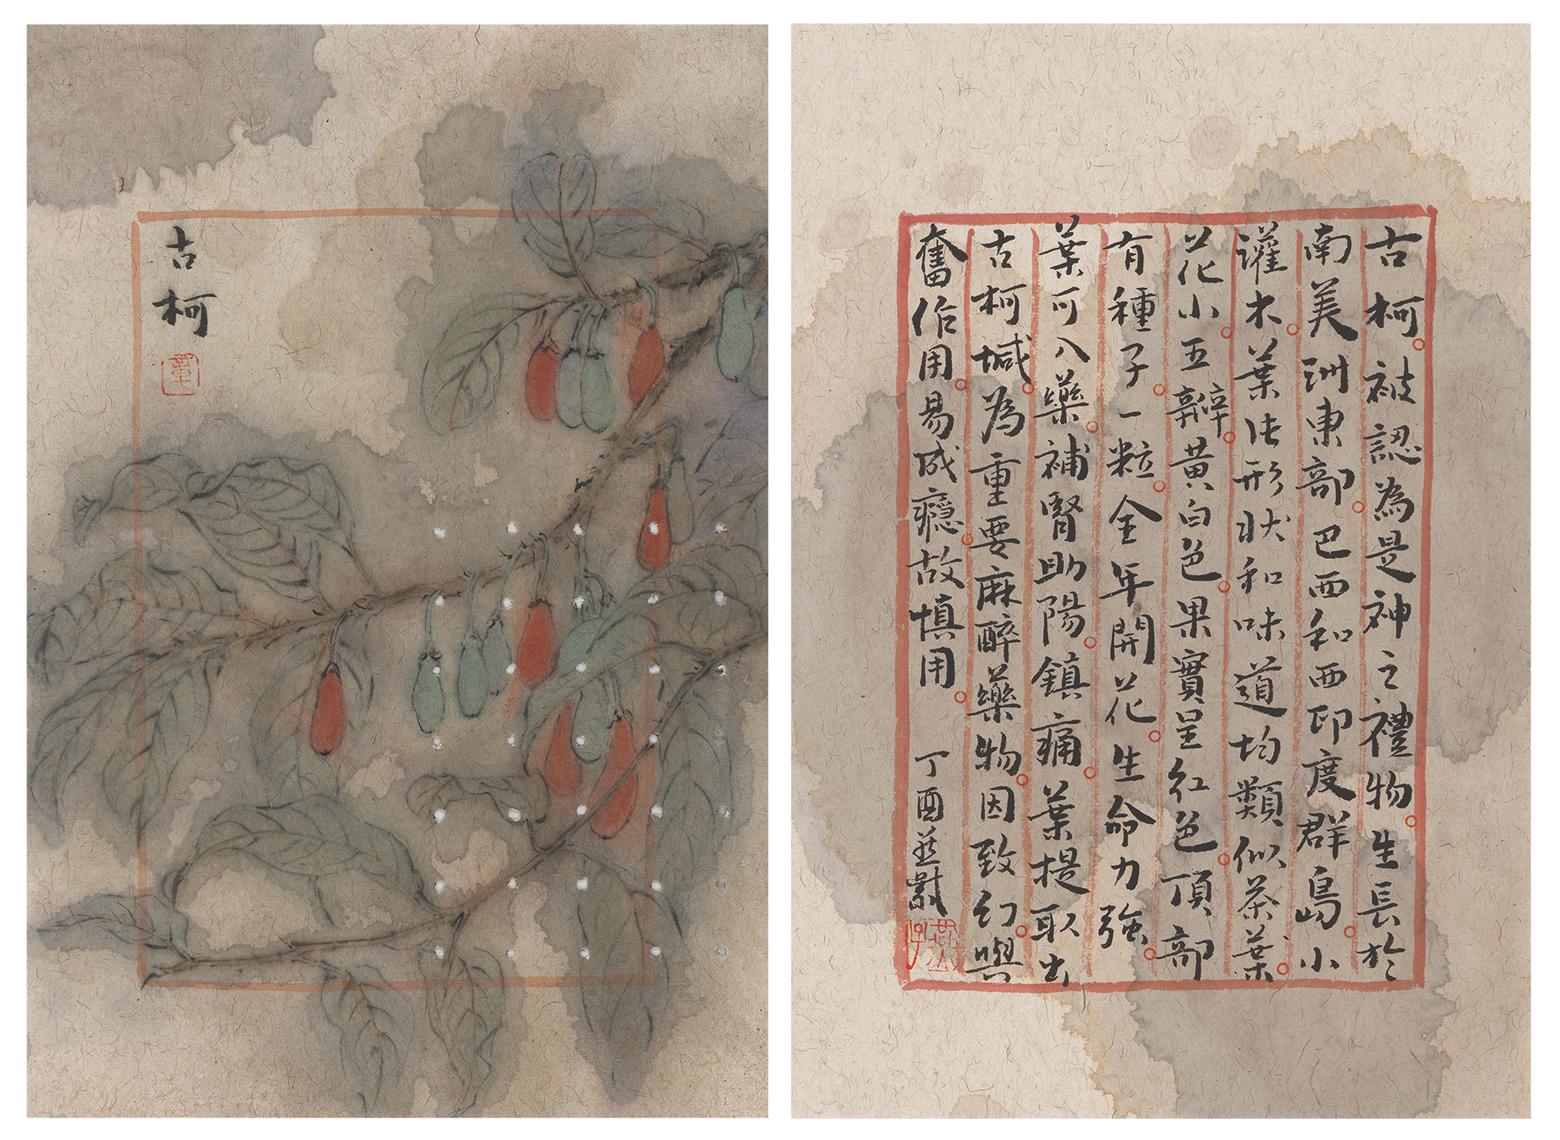 古柯
古柯被認為是神之禮物生長於
南美洲東部巴西和西印度群島小
灌木葉形狀和味道均類似茶葉
花小五瓣黃白色果實呈紅色頂部
有種子一粒全年開花生命力強
葉可入藥補腎助陽鎮痛葉提取出
古柯堿為重要麻醉藥物因致幻興
奮作用易成癮故慎用 丁酉